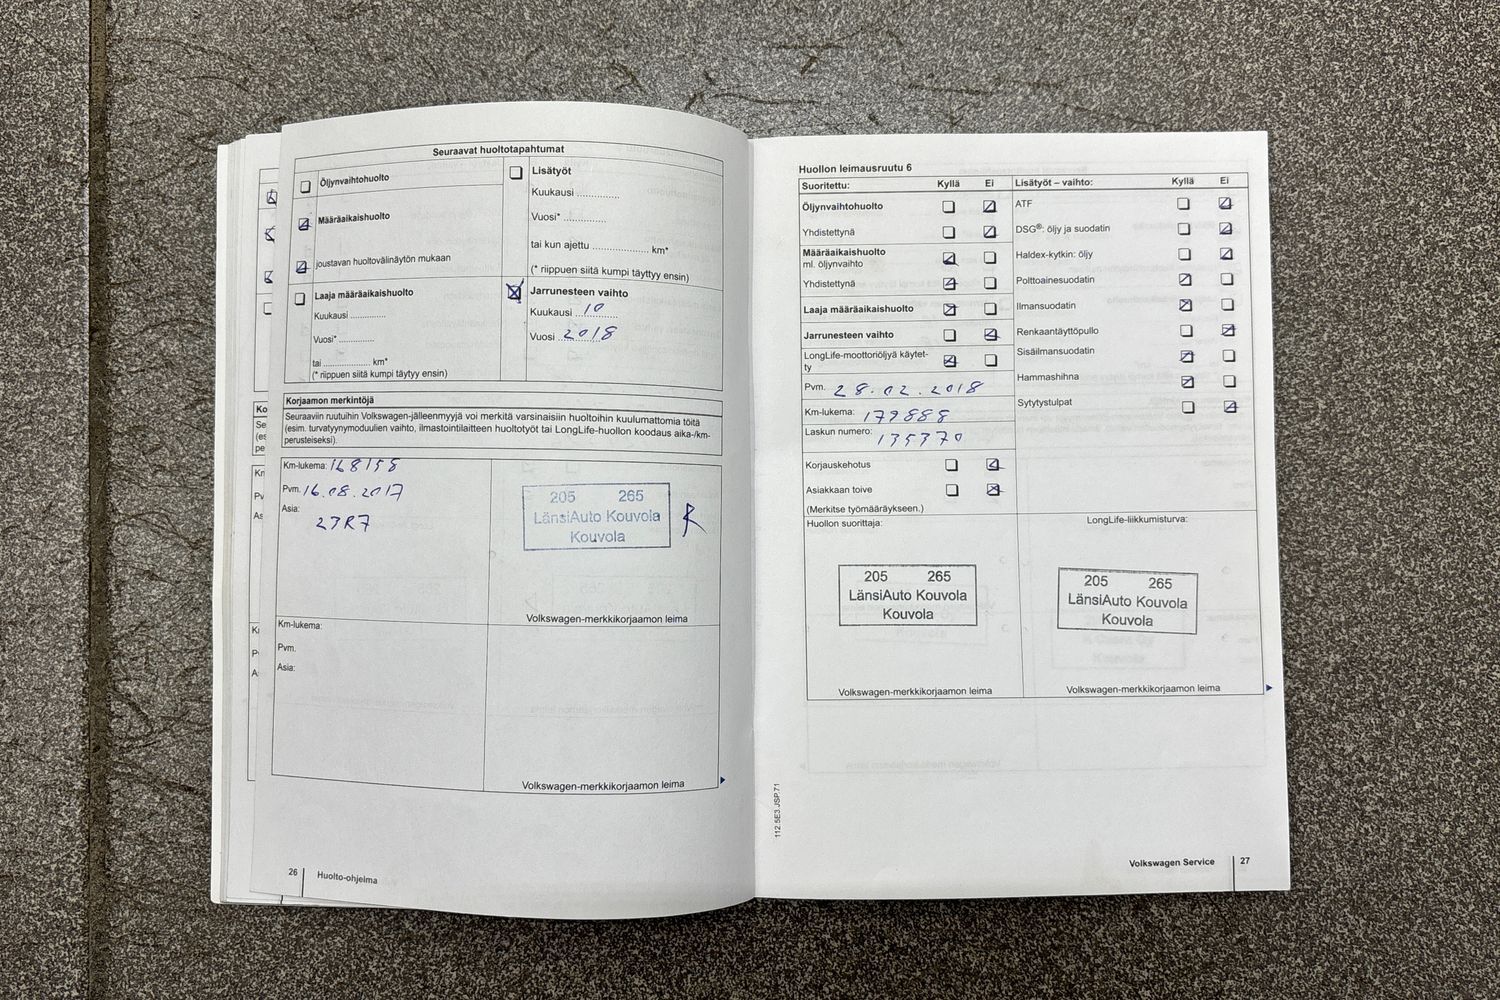 Seuraavat huoltotapahtumat
Öljynvaihtohuolto
Määräaikaishuolto
joustavan huoltovälinäytön mukaan
Laaja määräaikaishuolto
Kuukausi ..............
Vuosi* ..............
tai .................... km*
(* riippuen siitä kumpi täytyy ensin)
Lisätyöt
Kuukausi ..............
Vuosi* ..............
tai kun ajettu .................... km*
(* riippuen siitä kumpi täyttyy ensin)
Jarrunesteen vaihto
Kuukausi 10
Vuosi 2018
Korjaamon merkintöjä
Seuraaviin ruutuihin Volkswagen-jälleenmyyjä voi merkitä varsinaisiin huoltoihin kuulumattomia töitä
(esim. turvatyynymoduulien vaihto, ilmastointilaitteen huoltotyöt tai LongLife-huollon koodaus aika-/km-
perusteiseksi).
Km-lukema: 168155
Pvm. 16.08.2017
Asia:
27R7
205 265
LänsiAuto Kouvola
Kouvola
Volkswagen-merkkikorjaamon leima
Km-lukema:
Pvm.
Asia:
Volkswagen-merkkikorjaamon leima
26
Huolto-ohjelma
Huollon leimausruutu 6
Suoritettu: Kyllä Ei
Öljynvaihtohuolto
Yhdistettynä
Määräaikaishuolto
ml. öljynvaihto
Yhdistettynä
Laaja määräaikaishuolto
Jarrunesteen vaihto
LongLife-moottoriöljyä käytet-
ty
Pvm. 28.02.2018
Km-lukema: 179888
Laskun numero: 135370
Korjauskehotus
Asiakkaan toive
(Merkitse työmääräykseen.)
Lisätyöt – vaihto: Kyllä Ei
ATF
DSG®: öljy ja suodatin
Haldex-kytkin: öljy
Polttoainesuodatin
Ilmansuodatin
Renkaantäyttöpullo
Sisäilmansuodatin
Hammashihna
Sytytystulpat
Huollon suorittaja:
205 265
LänsiAuto Kouvola
Kouvola
Volkswagen-merkkikorjaamon leima
LongLife-liikkumisturva:
205 265
LänsiAuto Kouvola
Kouvola
Volkswagen-merkkikorjaamon leima
112.5E3.JSP.71
Volkswagen Service
27